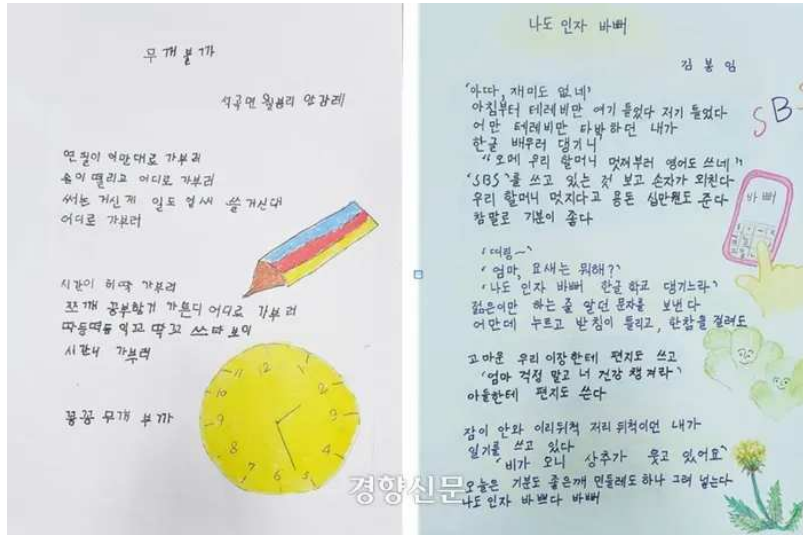 무개불까
석곡면 월봉리 안감례
연필이 어만대로 가부러
손이 떨리고 어디로 가부러
써는 거신게 일도 업새 쓸 거신대
어디로 가부러
시간이 히딱 가부러
쪼깨 공부한거 가튼디 어디로 가부러
따등때등 익꼬 딱꼬 쓰다 보이
시간니 가부러
꽁꽁 무개 부까
12
1
2
3
5
6
7
8
9
10
11
나도 인자 바뻐
김봉임
'아따, 재미도 없네'
아침부터 테레비만 여기 틀었다 저기 틀었다
어만 테레비만 타박하던 내가
한글 배우러 댕기니
"오메 우리 할머니 멋져부러 영어도 쓰네"
'SBS'를 쓰고 있는 것 보고 손자가 외친다
우리 할머니 멋지다고 용돈 십만원도 준다
참말로 기분이 좋다
SBS
바뻐
'띠링~'
'엄마, 요새는 뭐해?'
'나도 인자 바뻐 한글학교 댕기느라'
젊은이만 하는 줄 알던 문자를 보낸다
어만데 누르고 받침이 틀리고, 한참을 걸려도
고마운 우리 이장한테 편지도 쓰고
'엄마 걱정 말고 너 건강 챙겨라'
아들한테 편지도 쓴다
잠이 안와 이리뒤척 저리뒤척이던 내가
일기를 쓰고 있다
'비가 오니 상추가 웃고 있어요'
오늘은 기분도 좋은깨 민들레도 하나 그려 넣는다
나도 인자 바쁘다 바뻐
경향신문